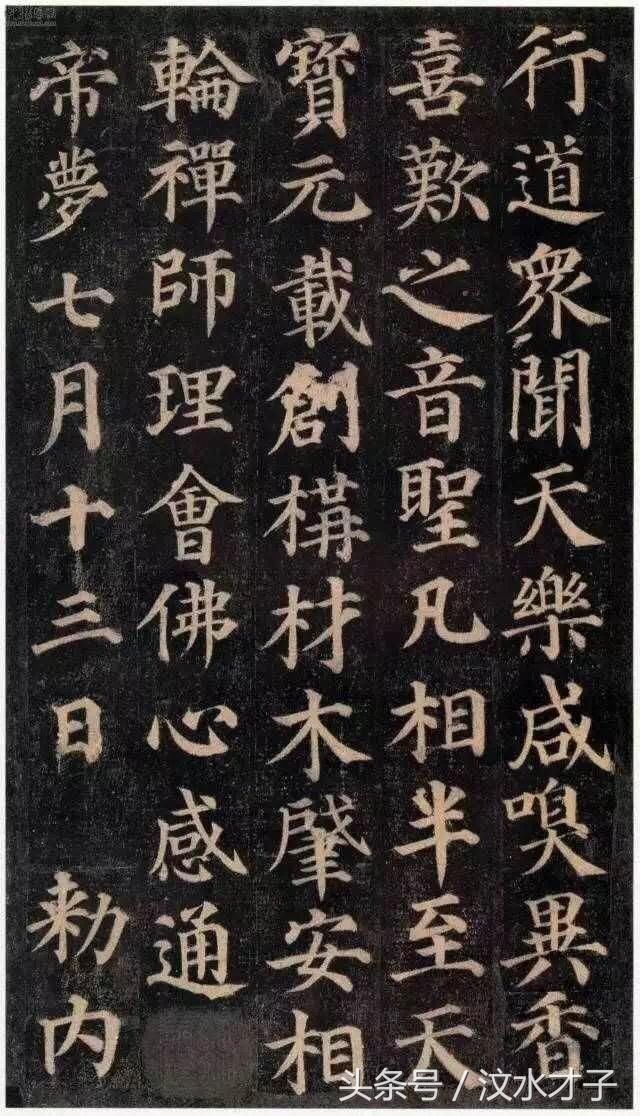 行道眾聞天樂咸嗅異香
喜歎之音聖凡相半至天
寶元載創構材木肇安相
輪禪師理會佛心感通
帝夢七月十三日 勑内
头条号 / 汶水才子